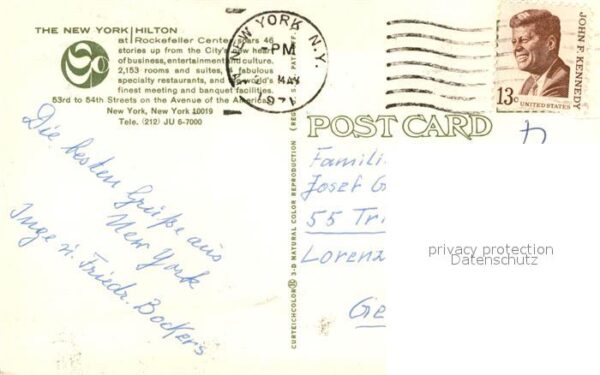 THE NEW YORK HILTON
at Rockefeller Center soars 46
stories up from the City's new heart
of business, entertainment and culture.
2,153 rooms and suites, a fabulous
specialty restaurants, and world's
finest meeting and banquet facilities.
53rd to 54th Streets on the Avenue of the Americas
New York, New York 10019
Tele. (212) JU 6-7000
Die besten Grüße aus
New York
Inge u. Friedr. Bockers
CURTEICHCOLOR 3-D NATURAL COLOR REPRODUCTION
NEW YORK, N.Y.
PM
MAY
13c
UNITED STATES
JOHN F. KENNEDY
POST CARD
Famili
Josef G
55 Tri
Lorenz
Ge
privacy protection
Datenschutz